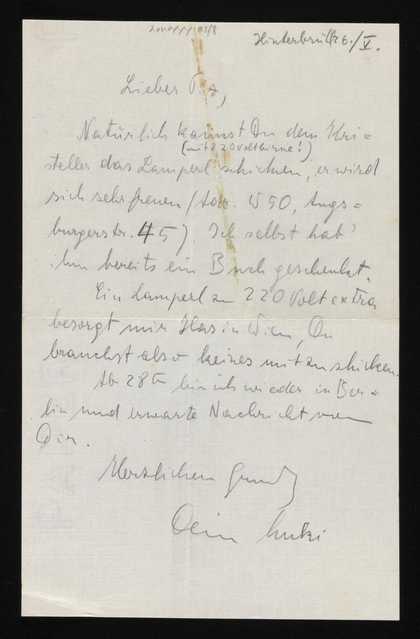 Hinterbrühl 26./V.
Lieber
Natürlich kannst Du dem Kri=
(mit 220 Volt birne!)
steller das Lamperl schicken, er wird
sich sehr freuen (Adr. W 50, Augs=
burgerstr. 45) Ich selbst hab'
ihm bereits ein Buch geschenkt.
Ein Lamperl zu 220 Volt extra
besorgt mir Has in Wien, Du
brauchst also keines mitzuschicken.
Ab 28ten bin ich wieder in Ber=
lin und erwarte Nachricht von
Dir.
Herzlichen Gruß
Dein